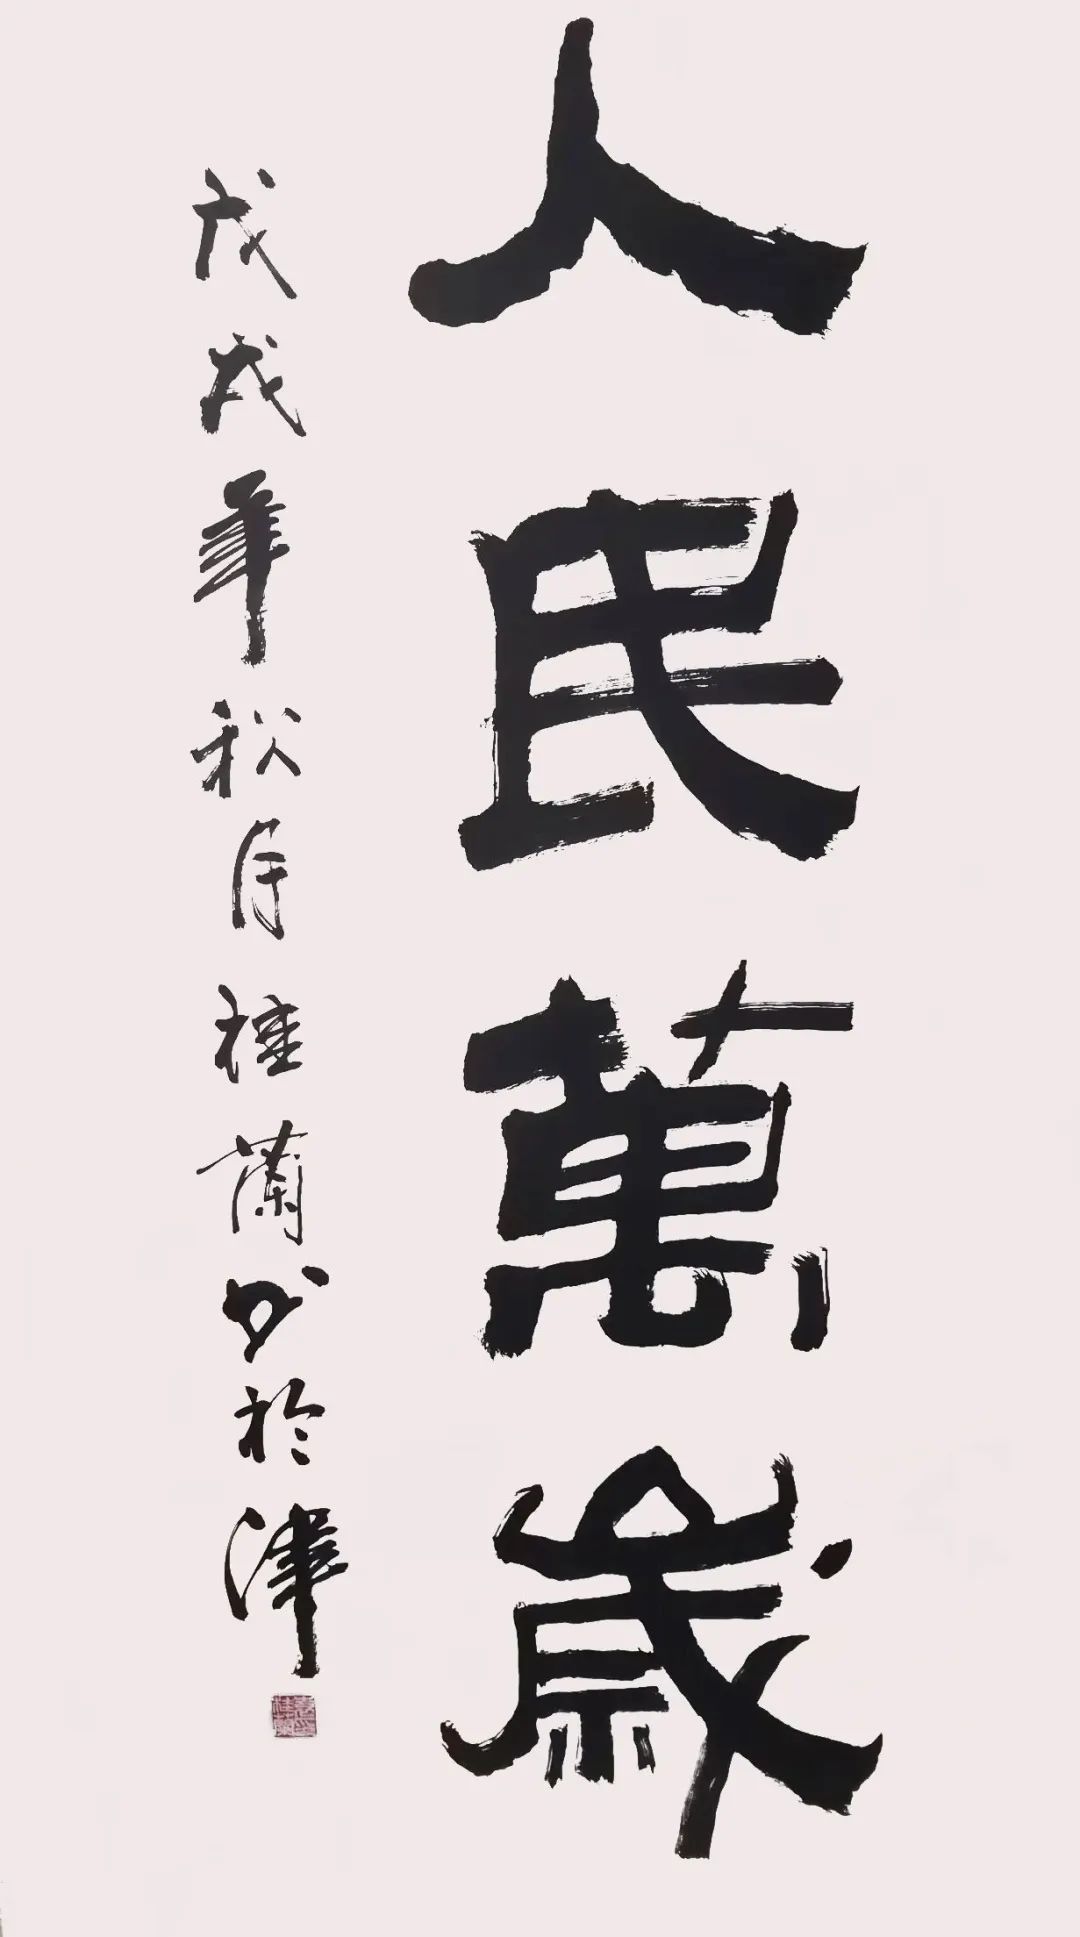 人民萬歲
戊戌年秋月桂蘭书於津